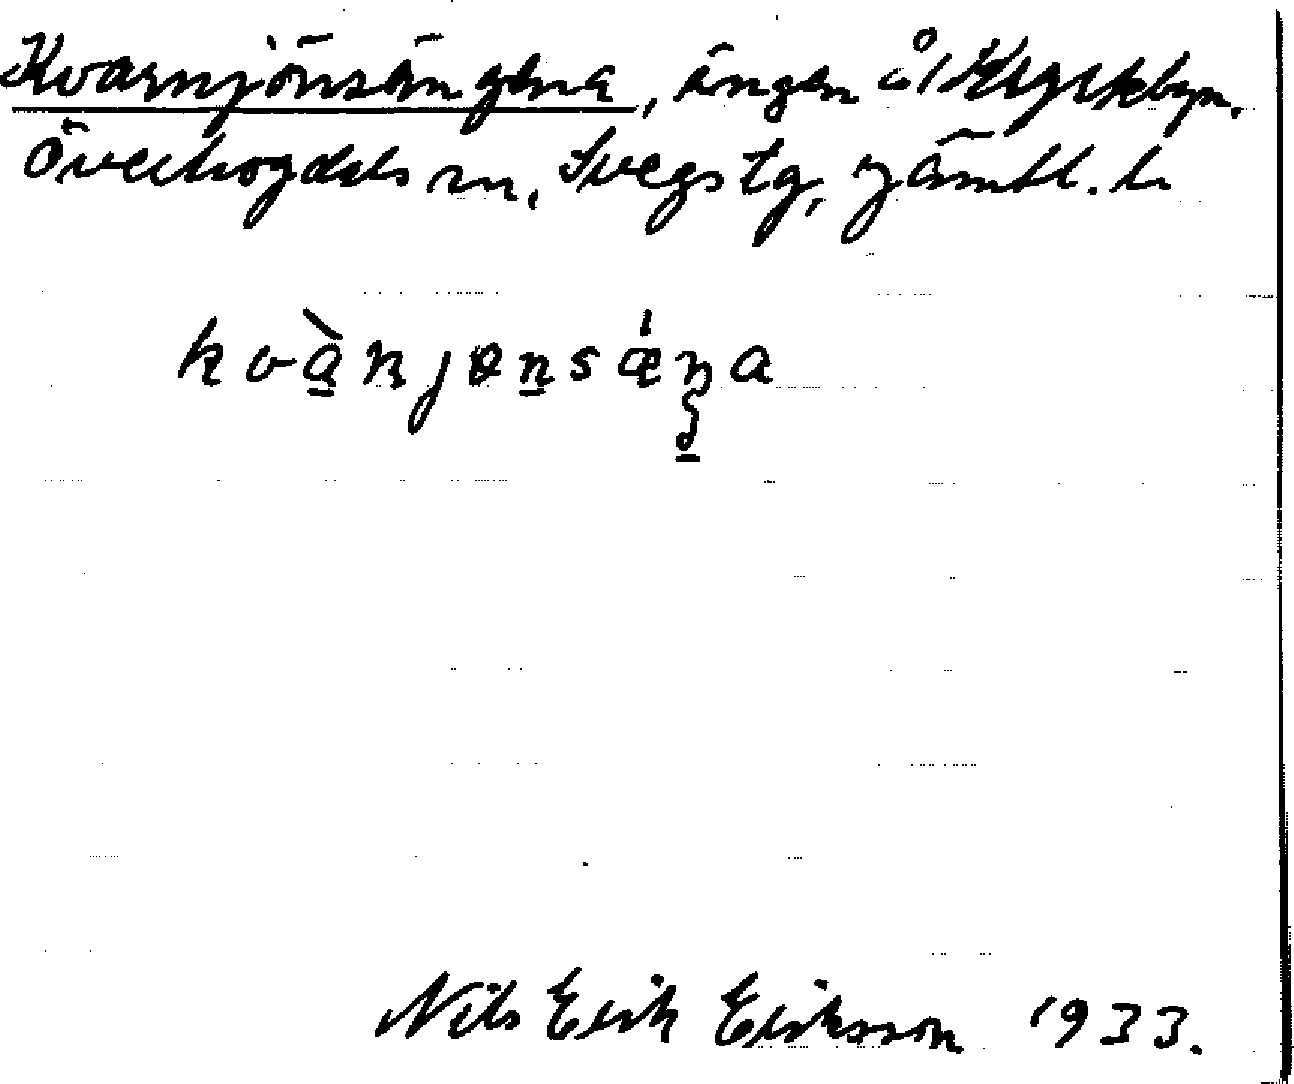 Kvarnjönsängena, ängen å Kyrkbyn.
Överhogdals sn, Svegs tg, Jämtl. l.
kvànjɵnsǽŋa
Nils Erik Eriksson 1933.